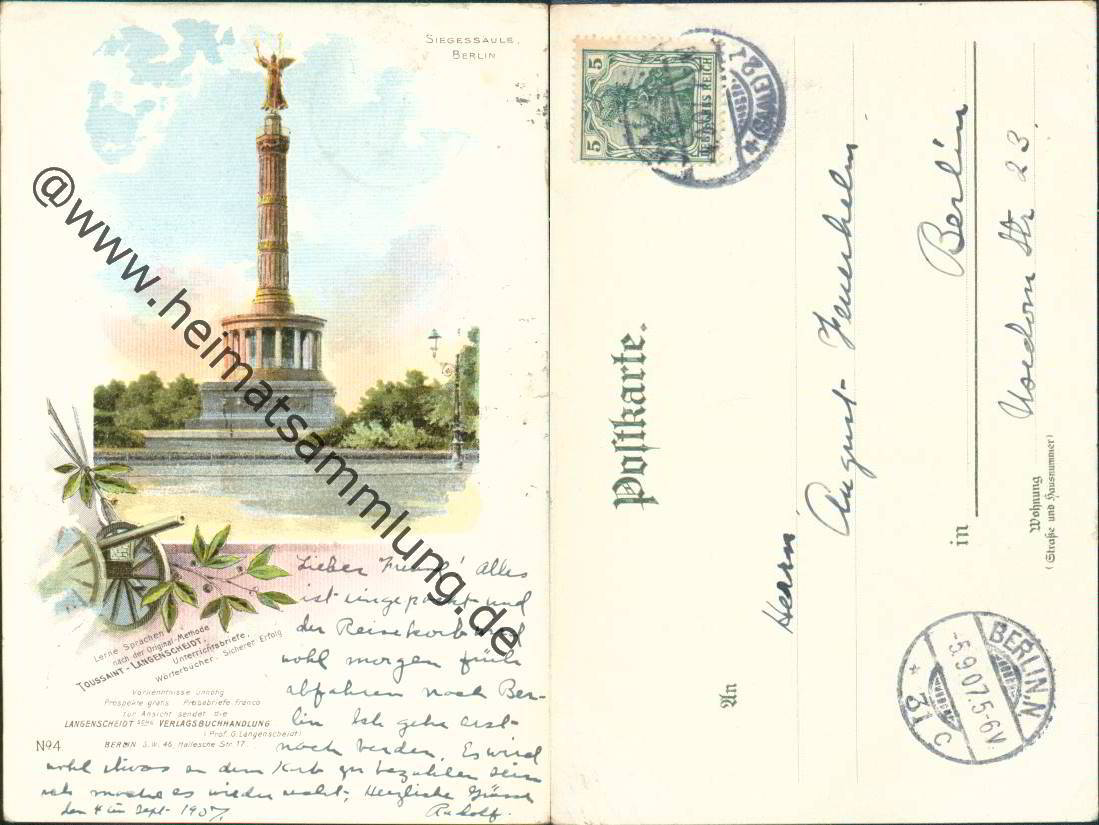 SIEGESSÄULE,
BERLIN
@www.heimatsammlung.de
Lieber Freund! Alles
ist eingepackt und
der Reisekorb wird
wohl morgen früh
abfahren nach Ber-
lin. Ich gehe erst
noch baden. Es wird
wohl etwas an dem Korb zu bezahlen sein
ich mache es wieder recht. Herzliche Grüsse
den 4ten Sept. 1907. Rudolf.
Lerne Sprachen
nach der Original-Methode
TOUSSAINT-LANGENSCHEIDT.
Unterrichtsbriefe,
Wörterbücher. Sicherer Erfolg
Vorkenntnisse unnötig
Prospekte gratis Probebriefe franco
zur Ansicht sendet die
LANGENSCHEIDTSCHE VERLAGSBUCHHANDLUNG
(Prof. G. Langenscheidt)
BERLIN S.W. 46, Hallesche Str. 17.
No 4.
5
5
DEUTSCHES REICH
Postkarte.
An
Herrn
August
in
Berlin
Usedom Str 23.
Wohnung
(Straße und Hausnummer)
BERLIN N.
-5.9.07.5-6V.
* 31 c